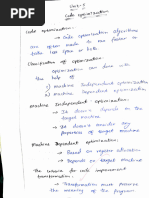 Unit-5
Code optimization
Code optimization:
→ Code optimization algorithms
are often made to run faster or
take less space or both
Classification of optimization:
Optimization can have with
the help of
1) Machine Independent optimization
2) Machine Dependent optimization
Machine Independent optimization:
→ It doesn't depends on the
target machine
→ It doesn't consider any
properties of target machine
Machine Dependent optimization:
→ Based on register allocation
→ Depends on the target machine.
The criteria for code improvement
transformation:
→ Transformation must preserve
the meaning of the program